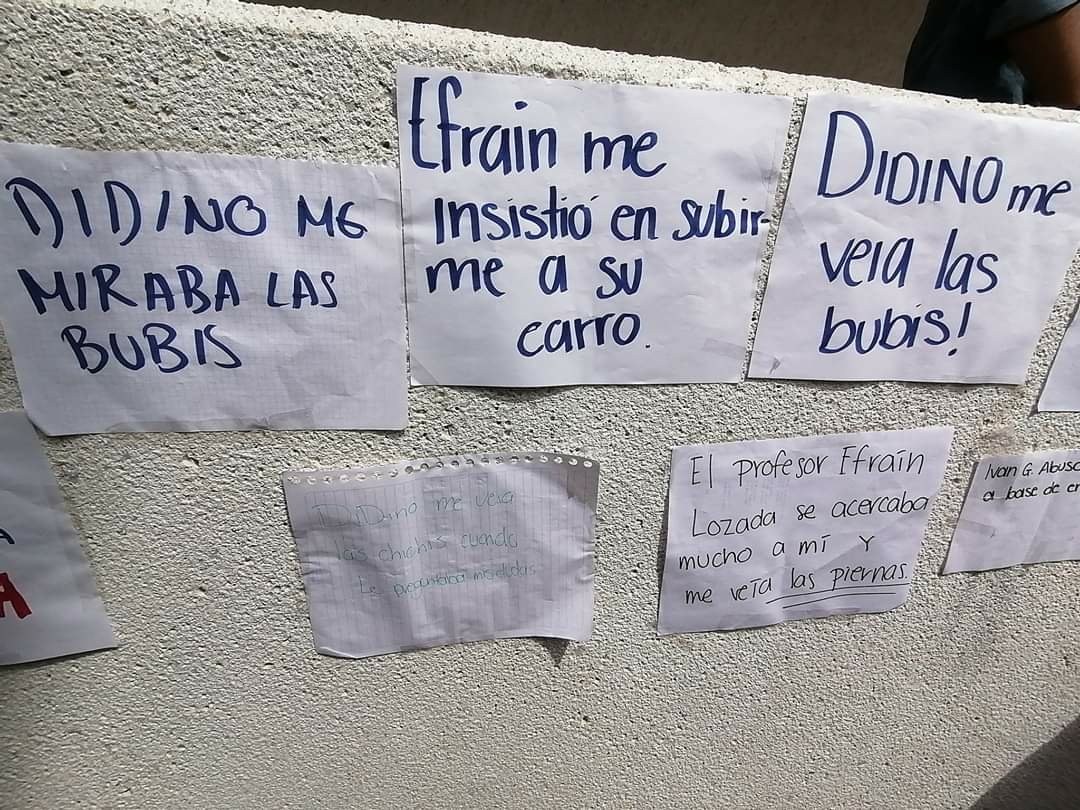 DIDINO ME
MIRABA LAS
BUBIS
Efrain me
Insistió en subir-
me a su
carro.
DIDINO me
veia las
bubis!
DIDino me veia
las chichis cuando
Le preguntaba mis dudas
El profesor Efraín
Lozada se acercaba
mucho a mí y
me veía las piernas.
Ivan G.
a base de